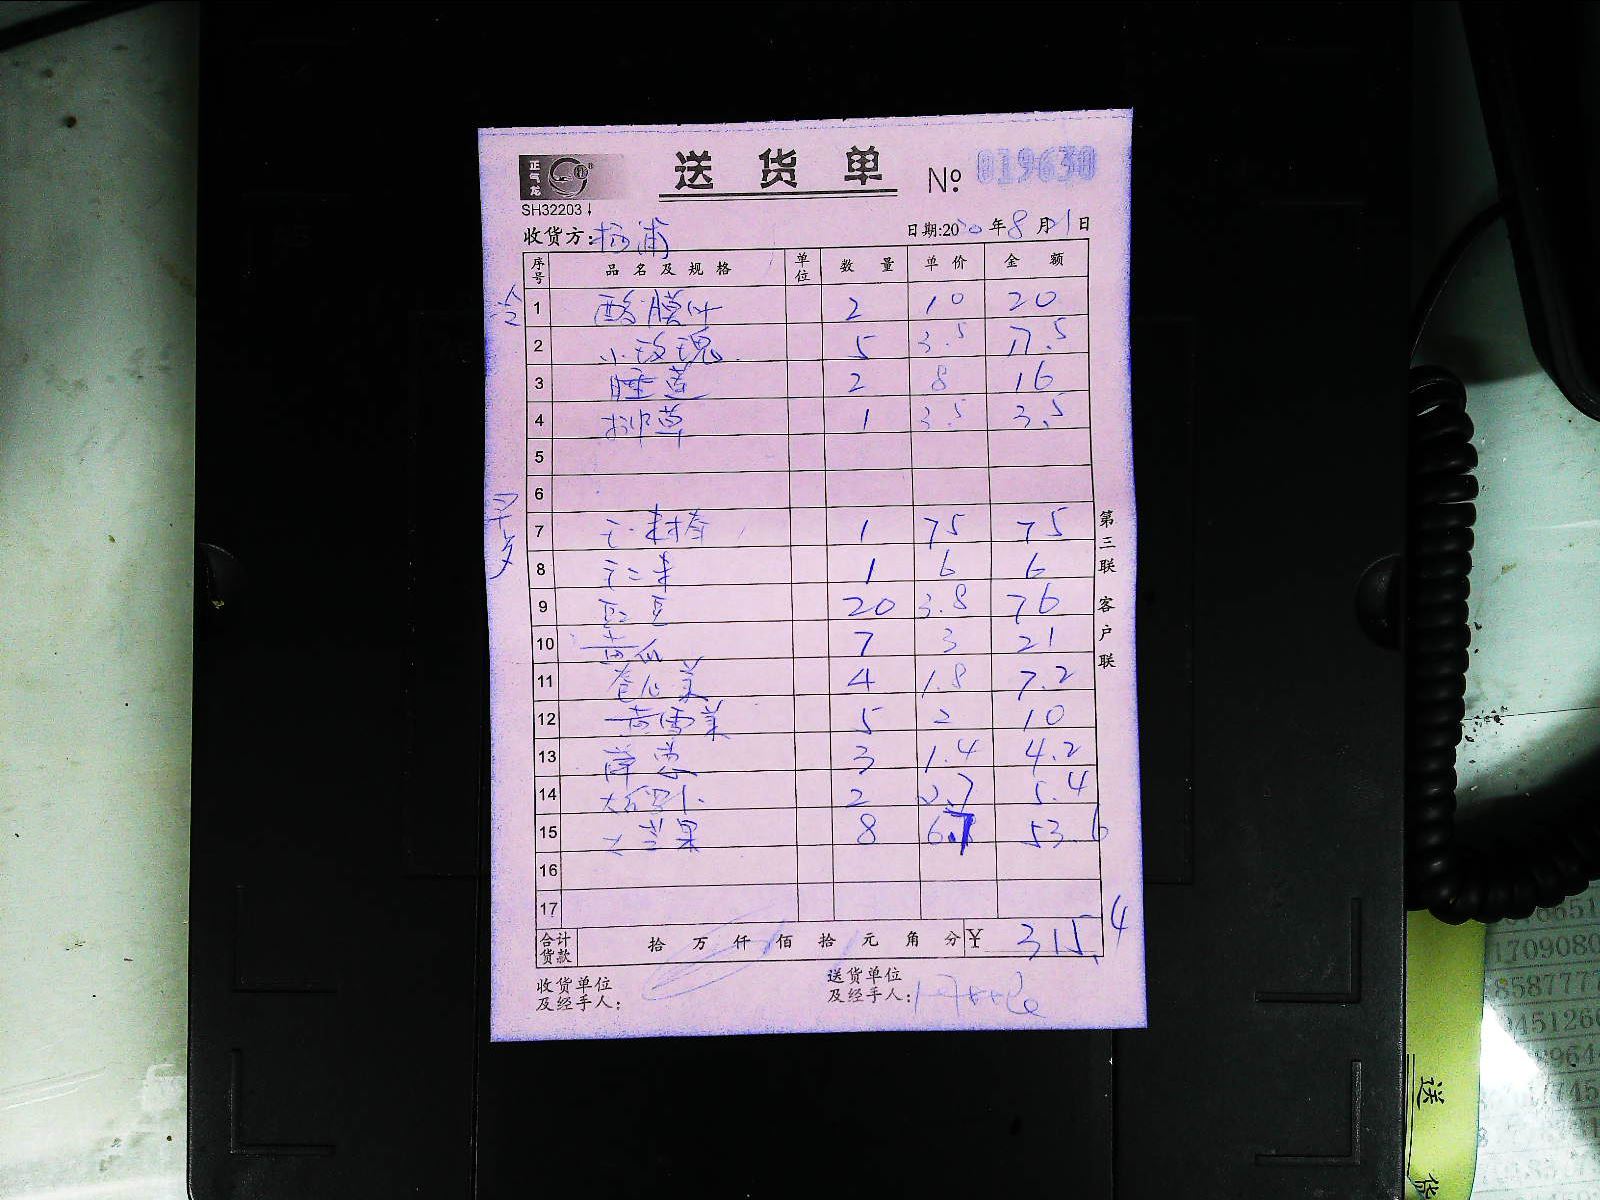 正气龙
送货单 № 019630
SH32203
收货方:杨浦 日期:2020年8月21日
序号 品名及规格 单位 数量 单价 金额
冷
1 酸膜叶 2 10 20
2 小玫瑰 5 3.5 17.5
3 睡莲 2 8 16
4 排草 1 3.5 3.5
5
6
7 1 75 75
8 1 6 6
9 豇豆 20 3.8 76
10 黄瓜 7 3 21
11 卷心菜 4 1.8 7.2
12 5 2 10
13 洋葱 3 1.4 4.2
14 大红萝卜 2 2.7 5.4
15 大芒果 8 6.7 53.6
16
17
合计货款 拾万仟佰拾元角分 ¥ 315.4
收货单位及经手人:
送货单位及经手人:
第三联 客户联
送
货